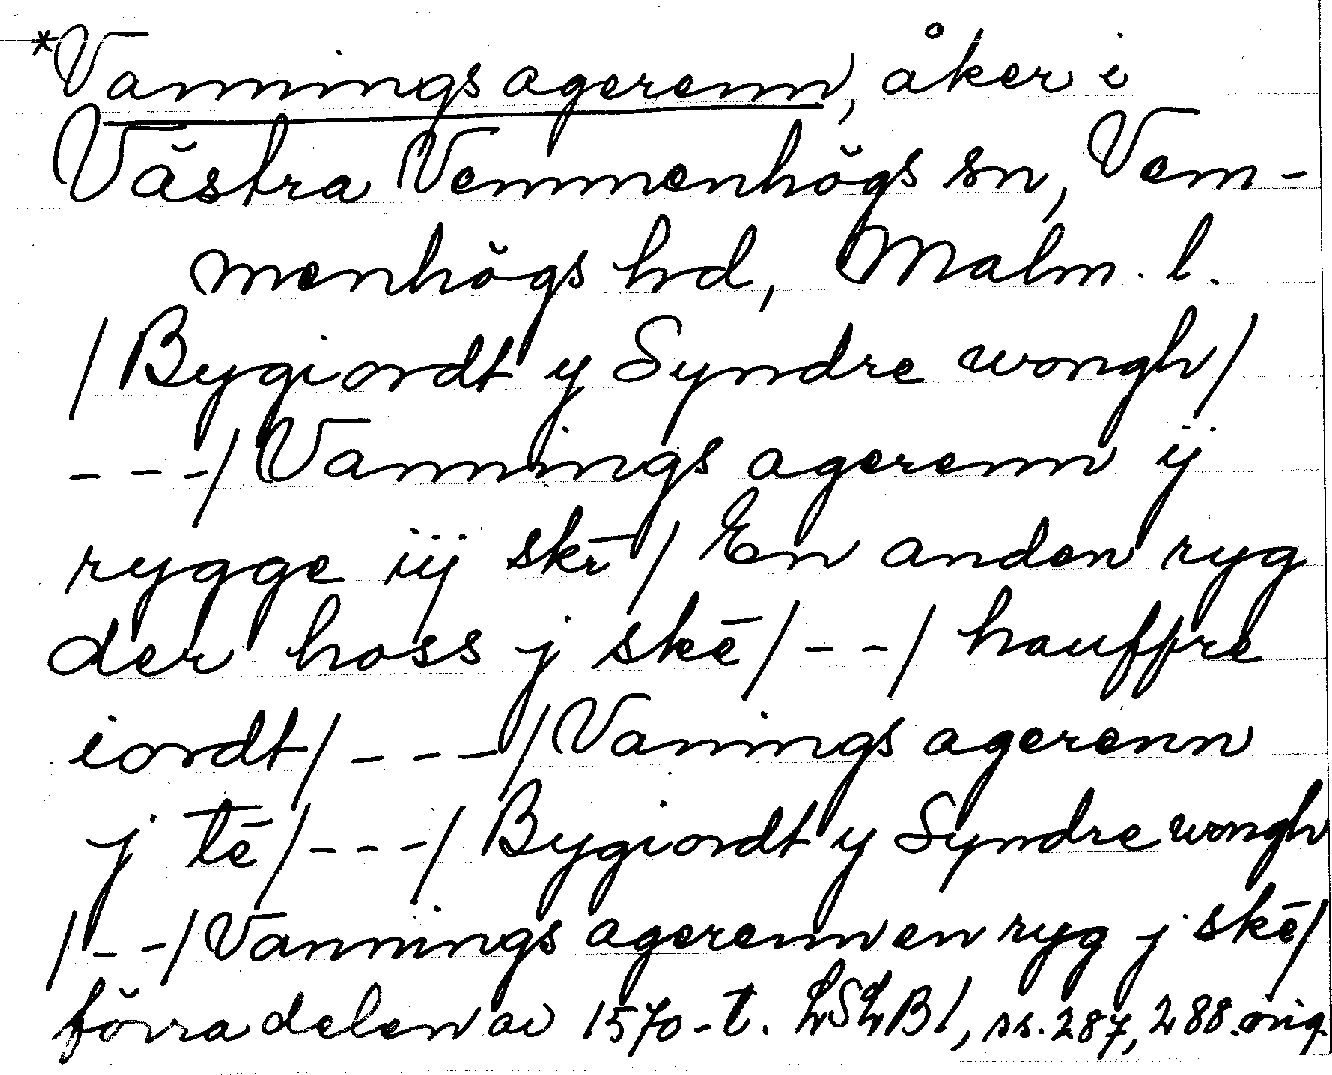 *Vannings agerenn, åker i
Västra Vemmenhögs sn, Vem-
menhögs hd, Malm. l.
/Bygiordt y Syndre wongh/
---/Vannings agerenn ij
rygge iij skē/ En anden ryg
der hoss j skē/--/ hauffre
iordt/---/Vanings agerenn
j tē/---/ Bygiordt y Syndre wongh
/--/Vannings agerenn en ryg j skē/
förra delen av 1570-t. ss. 287, 288. orig.